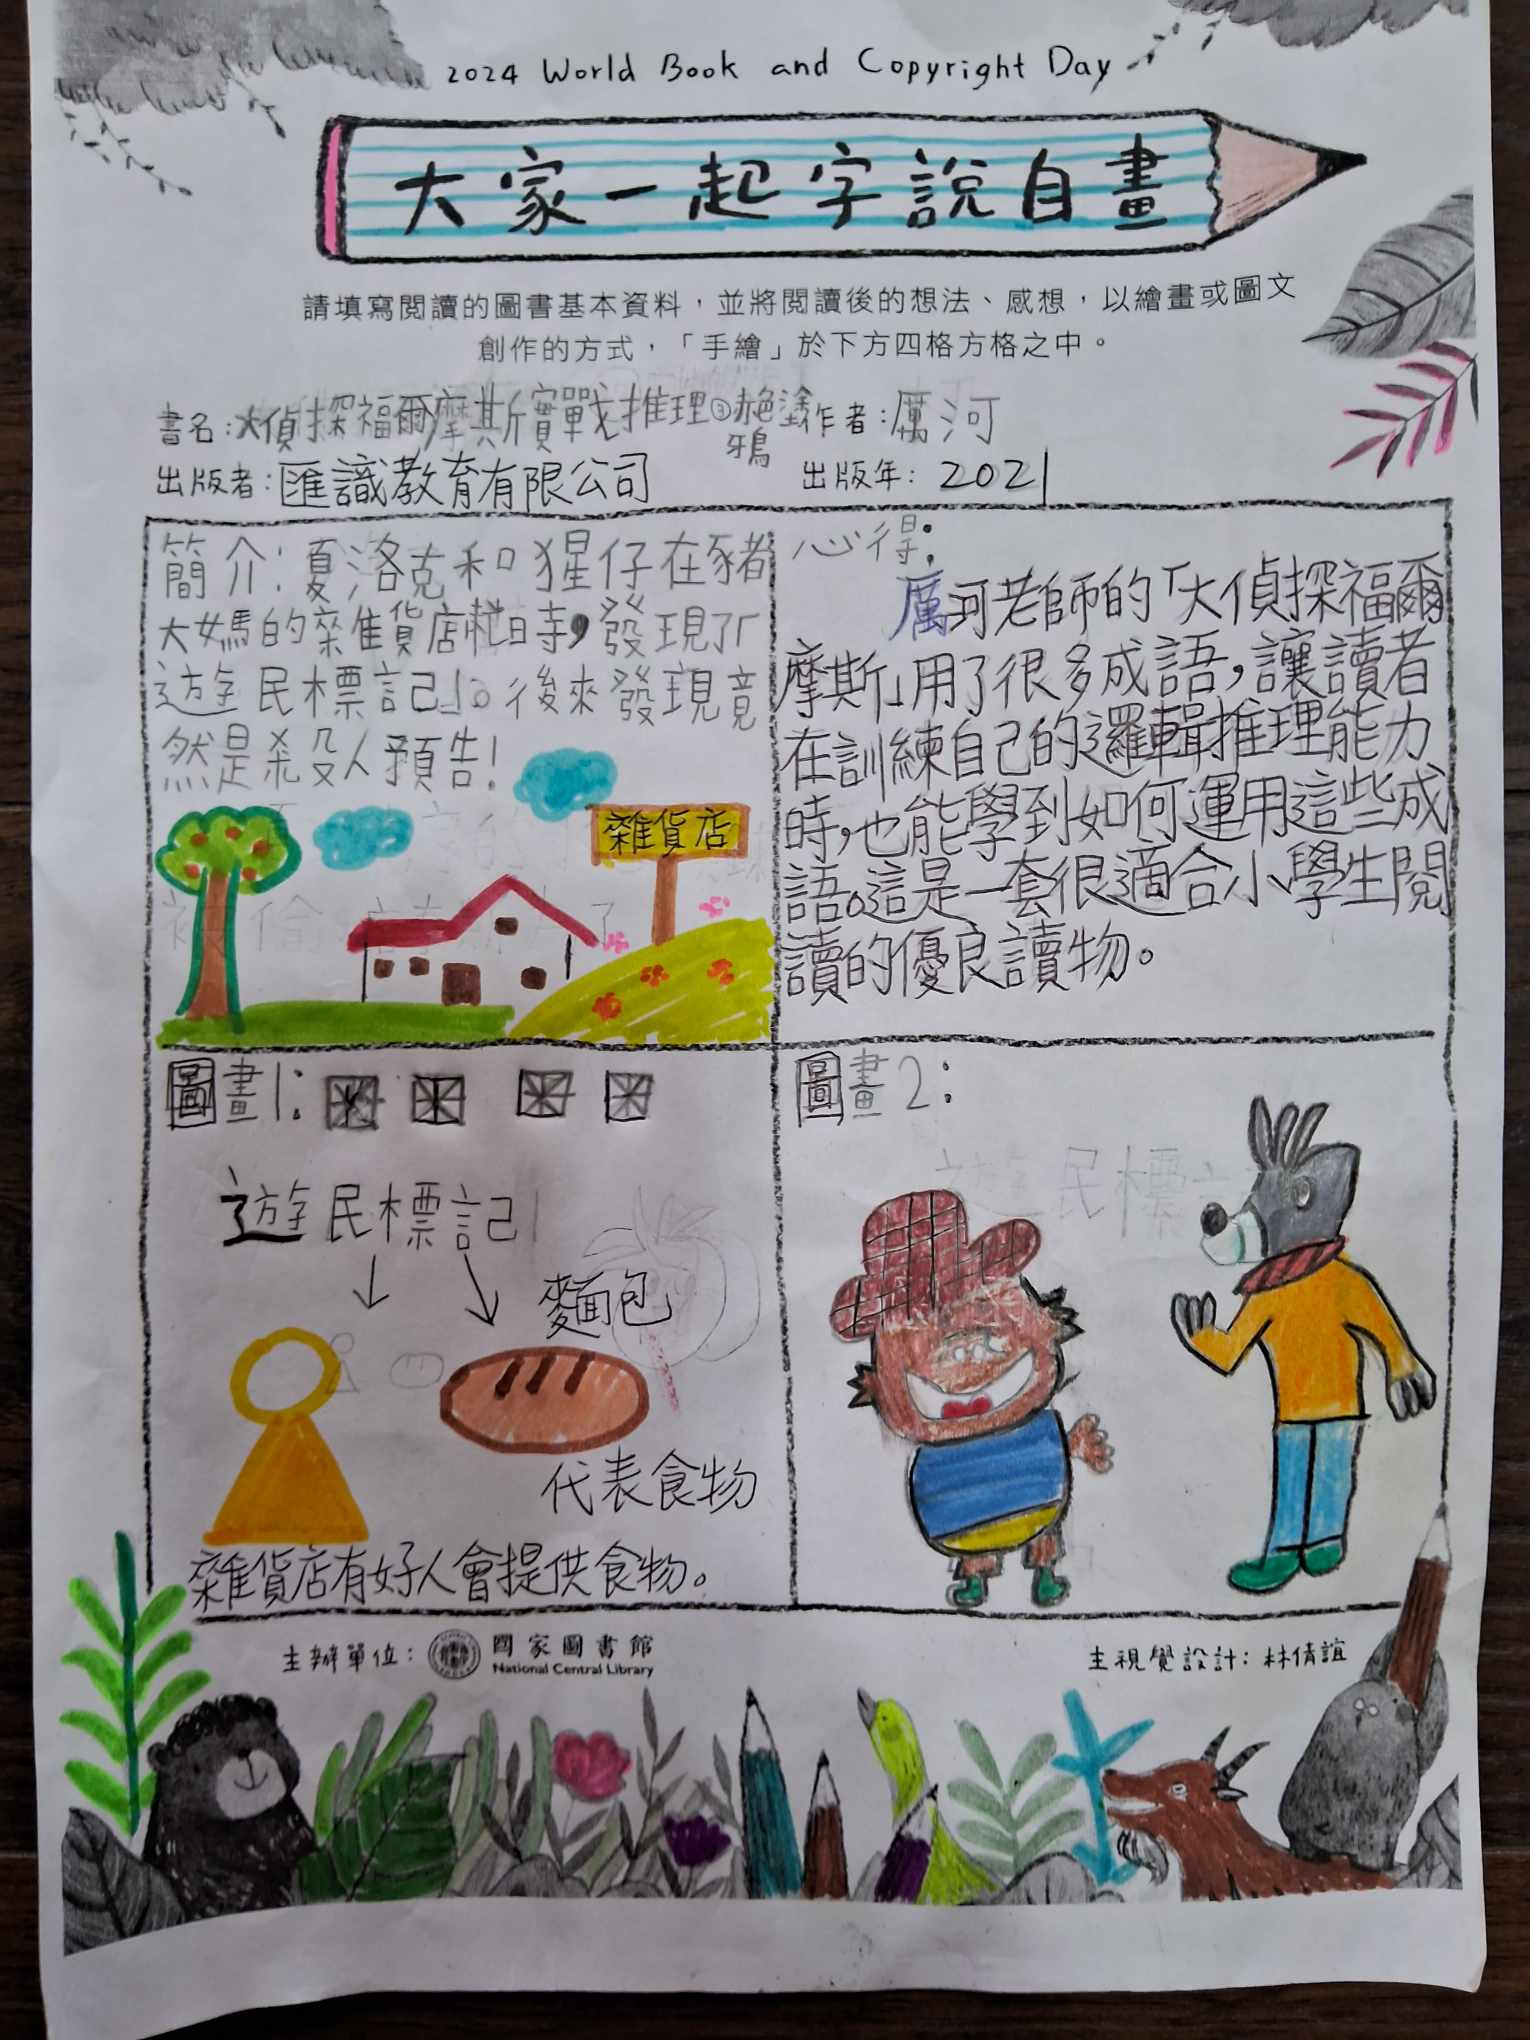 2024 World Book and Copyright Day
大家一起字說自畫
請填寫閱讀的圖書基本資料，並將閱讀後的想法、感想，以繪畫或圖文
創作的方式，「手繪」於下方四格方格之中。
書名：大偵探福爾摩斯實戰推理③ 塗鴉 作者：厲河
出版者：匯識教育有限公司 出版年：2021
簡介：夏洛克和猩仔在豬
大媽的雜貨店 時，發現了「
遊民標記」。後來發現竟
然是殺人預告！
雜貨店
心得：
厲河老師的「大偵探福爾
摩斯」用了很多成語，讓讀者
在訓練自己的邏輯推理能力
時，也能學到如何運用這些成
語。這是一套很適合小學生閱
讀的優良讀物。
圖畫1：
遊民標記
麵包
代表食物
雜貨店有好人會提供食物。
圖畫2：
主辦單位：國家圖書館
National Central Library
主視覺設計：林倩誼